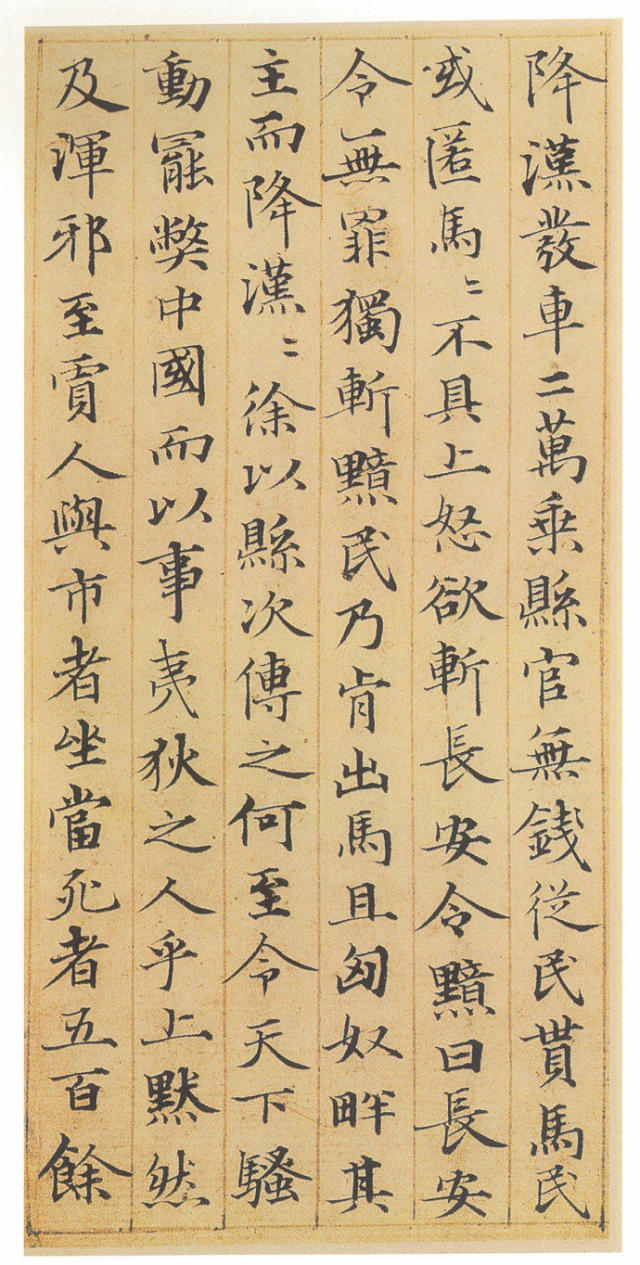 降漢發車二萬乘縣官無錢從民貰馬民
或匿馬〻不具上怒欲斬長安令黯曰長安
令無罪獨斬黯民乃肯出馬且匈奴畔其
主而降漢〻徐以縣次傳之何至令天下騷
動罷獘中國而以事夷狄之人乎上默然
及渾邪至賈人與市者坐當死者五百餘